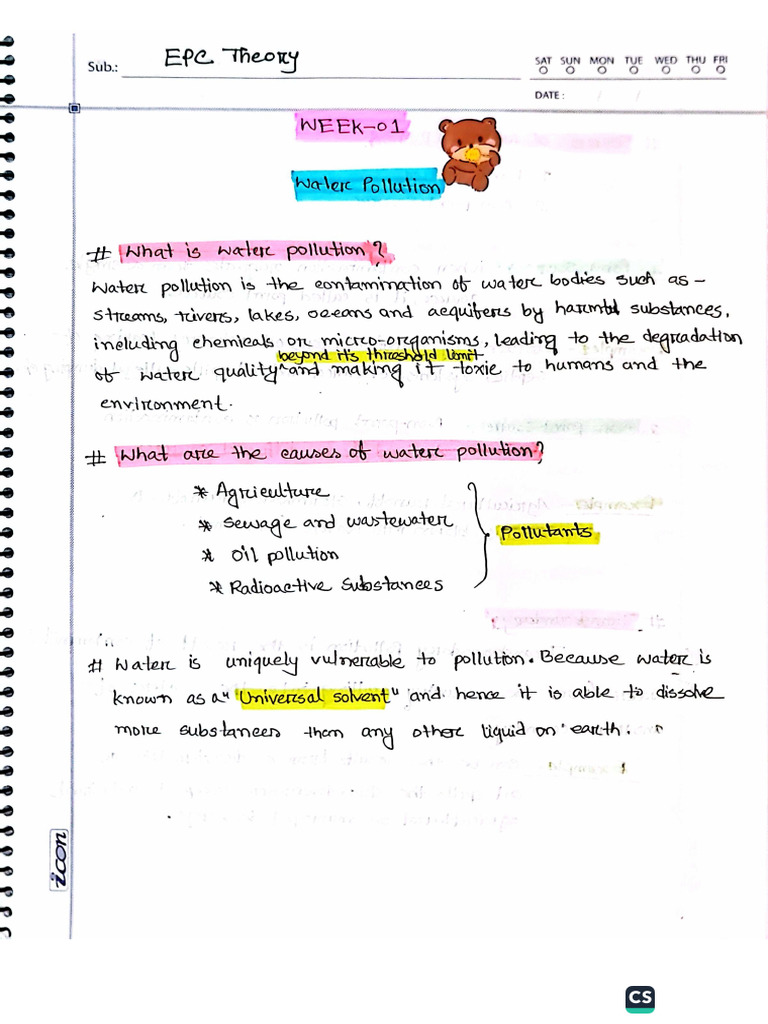 Sub.: EPC Theory
SAT SUN MON TUE WED THU FRI
DATE: / /
WEEK-01
Water Pollution
# What is water pollution?
Water pollution is the contamination of water bodies such as -
streams, rivers, lakes, oceans and aequifers by harmful substances,
including chemicals or micro-organisms, leading to the degradation
beyond it's threshold limit
of water quality ^ and making it toxic to humans and the
environment.
# What are the causes of water pollution?
* Agriculture
* Sewage and wastewater
Pollutants
* Oil pollution
* Radioactive substances
# Water is uniquely vulnerable to pollution. Because water is
known as a "Universal solvent" and hence it is able to dissolve
more substances than any other liquid on earth.
icon
CS